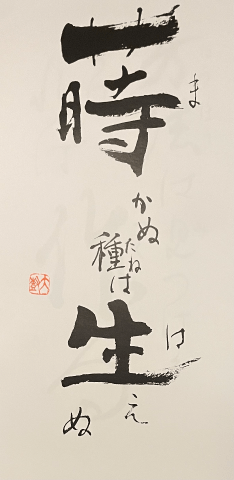 蒔かぬ
種は
生えぬ
ま
たね
は